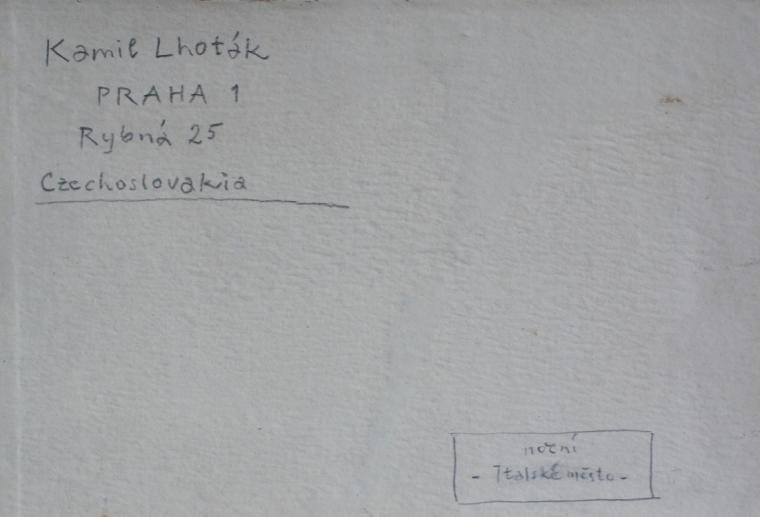 Kamil Lhoták
PRAHA 1
Rybná 25
Czechoslovakia
noční
- Italské město -